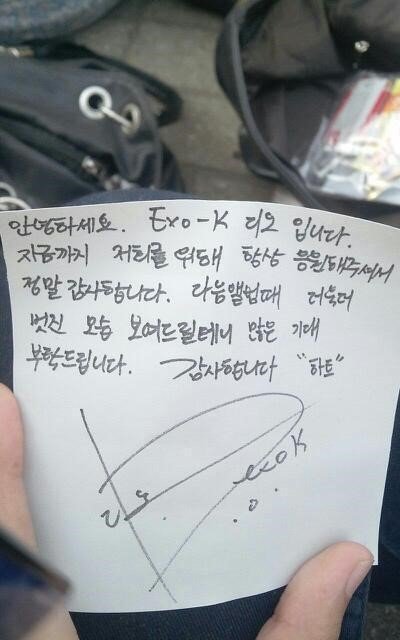 안녕하세요. Exo-K 디오 입니다.
지금까지 저희를 위해 항상 응원해주셔서
정말 감사합니다. 다음앨범때 더욱더
멋진 모습 보여드릴테니 많은 기대
부탁드립니다. 감사합니다 "하트"
exo K